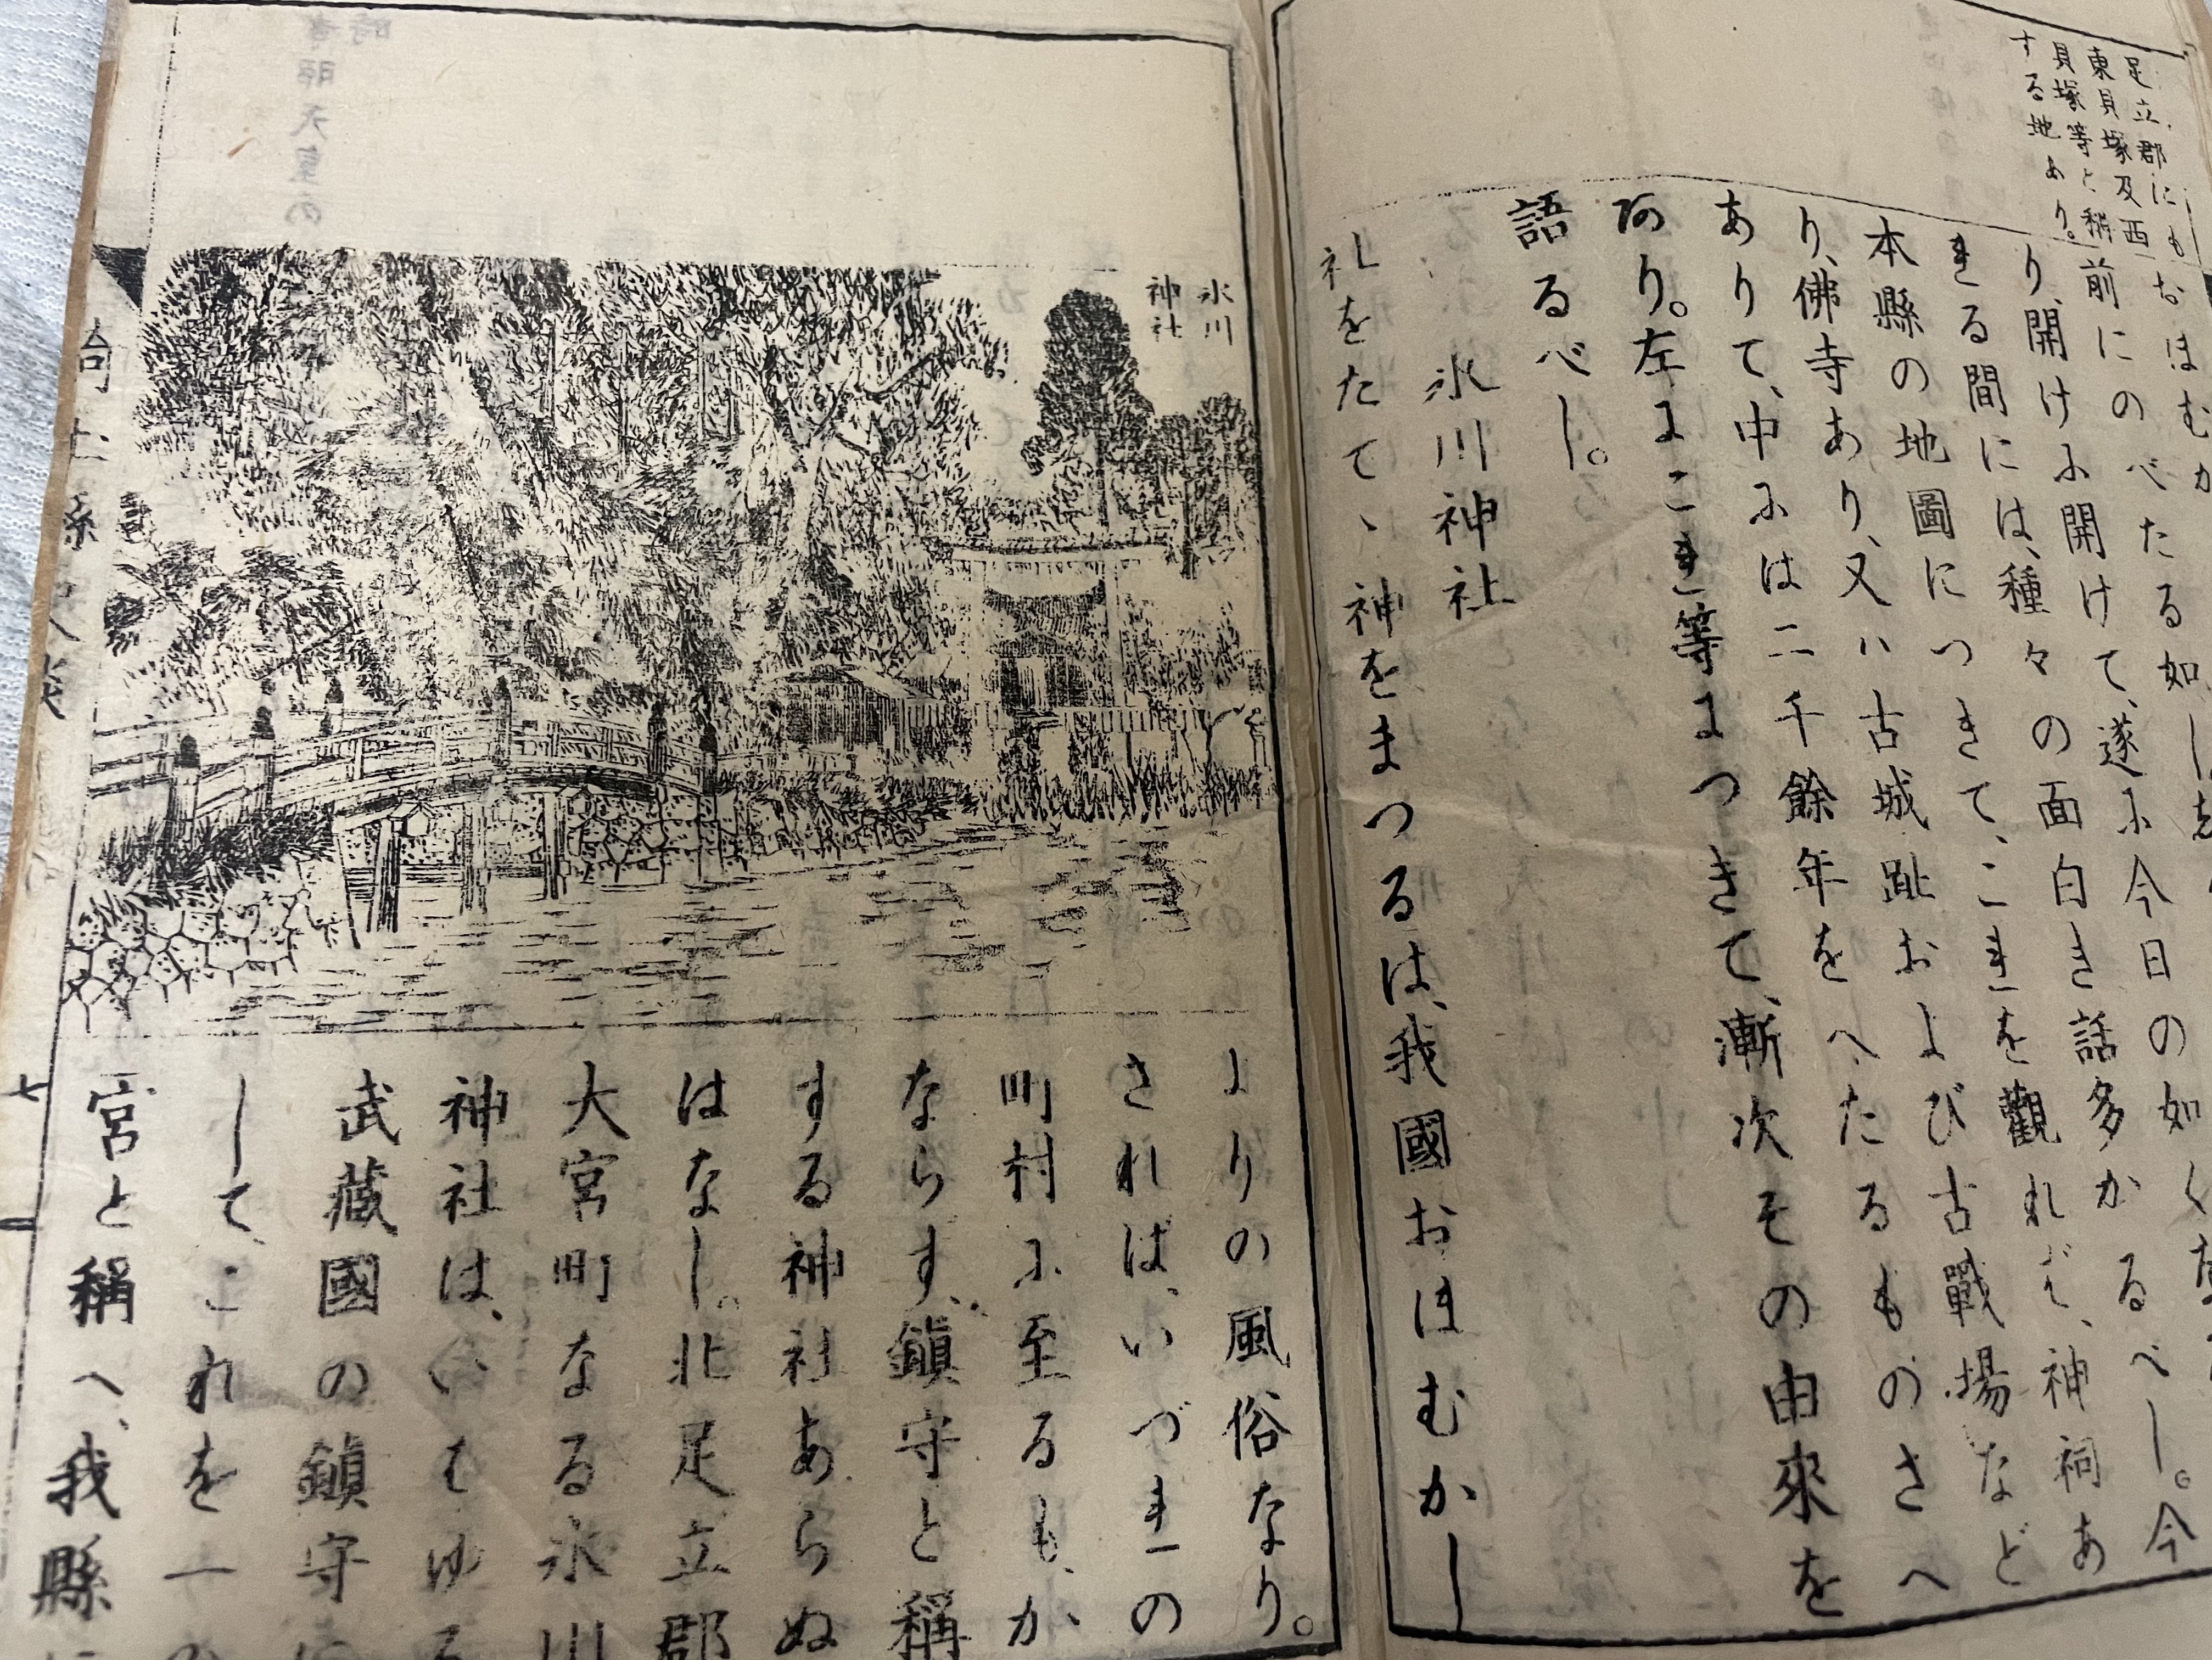 足立郡にも
東貝塚及西
貝塚等と稱
する地あり。
おほむか
前にのべたる如し
り、開けふ開けて、遂に今日の如く
きる間には、種々の面白き話多かるべし。今
本縣の地圖につきて、これを觀れば、神祠あ
り、佛寺あり、又ハ古城趾および古戰場など
ありて、中には二千餘年をへたるものさへ
あり。左にこれ等につきて、漸次その由來を
語るべし。
氷川神社
礼をたて、神をまつるは、我國おほむかし
氷川
神社
よりの風俗なり。
されば、いづれの
町村に至るも、か
ならす、鎮守と稱
する神社あらぬ
はなし。北足立郡
大宮町なる氷川
神社は、いはゆる
武藏國の鎮守に
して、これを一の
宮と稱へ、我縣に
七